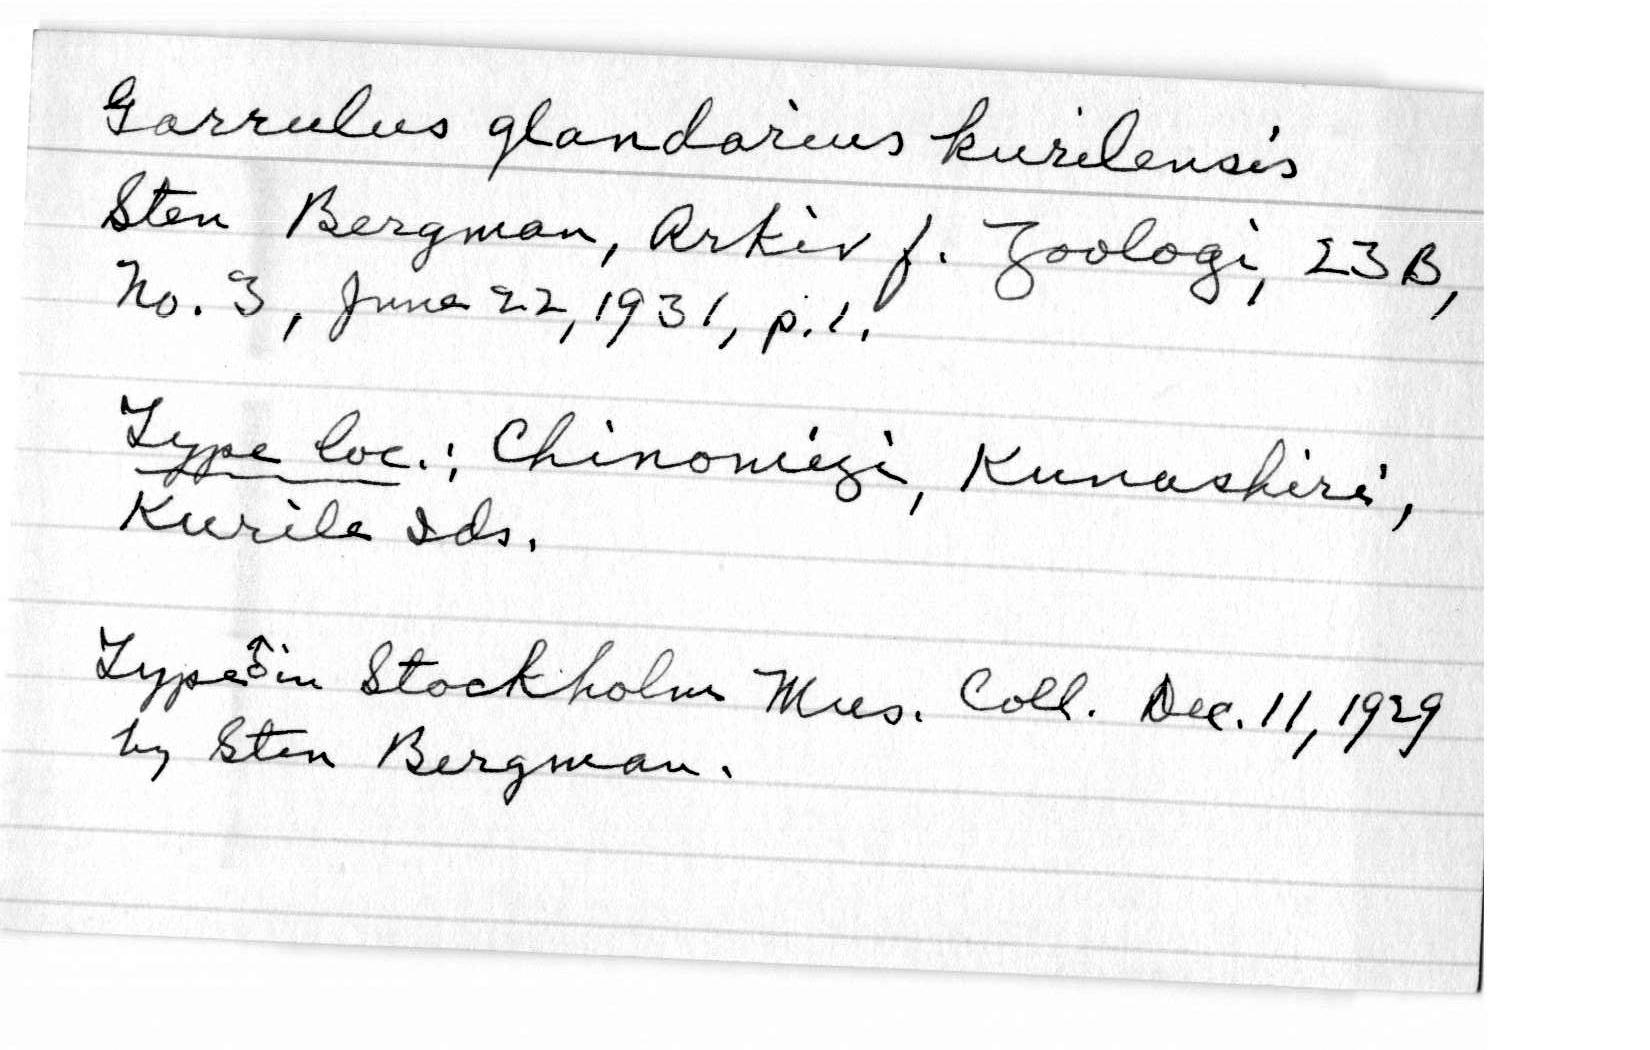 Garrulus glandarius kurilensis
Sten Bergman, Arkiv f. Zoologi, 23B,
No. 3, June 22, 1931, p. 1.
Type loc.: Chinomizi, Kunashiri,
Kurile Ids.
Type ♂ in Stockholm Mus. Coll. Dec. 11, 1929
by Sten Bergman.